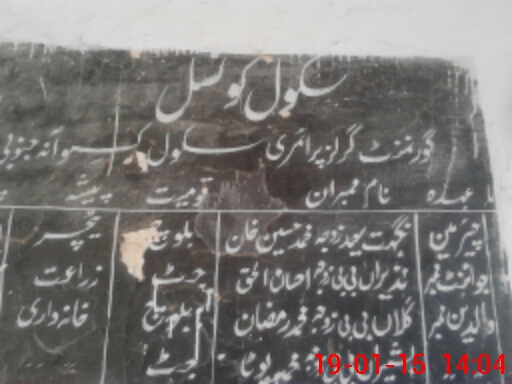 سکول کونسل
گورنمنٹ گرلز پرائمری سکول آنہ جنوبی
عہدہ نام ممبران قومیت پیشہ
چیئرمین نگہت زوجہ محمد حسین خان بلوچ ٹیچر
نذیراں بی بی زوجہ احسان الحق جٹ زراعت
والدین ممبر گلاں بی بی زوجہ محمد رمضان بلوچ خانہ داری
جٹ
19-01-15 14:04